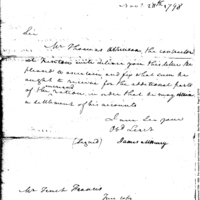 Novr 28th 1798
Sir
Mr Thomas the contractor
at will deliver you this letter be
pleased to ascertain and fix what sum he
ought to receive for the additional parts
of the ration, in order that he may
a settlement of his accounts
I am Sir your
Obd Servt
(Signed) James McHenry
Mr Tench Francis